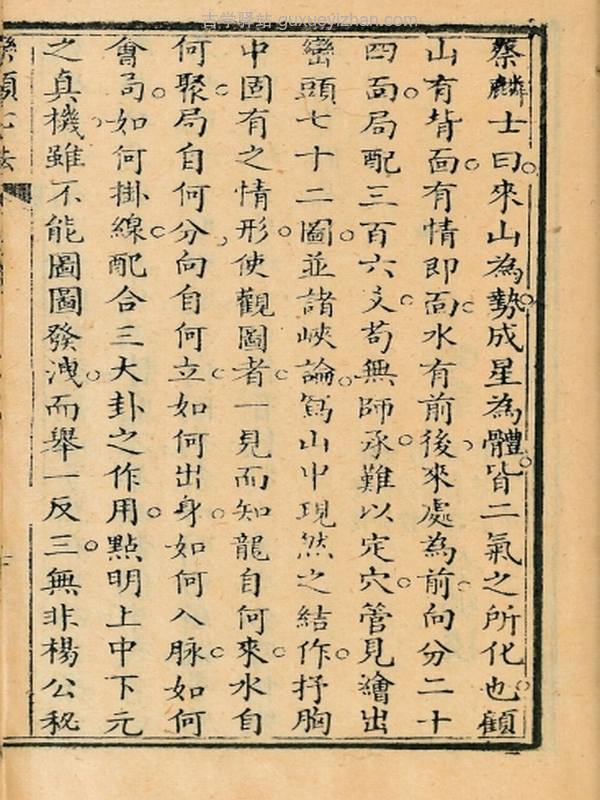 古学驿站 guxueyizhan.com
蔡麟士曰來山為勢成星為體皆二氣之所化也顧
山有背面有情即面水有前後來處為前向分二十
四面局配三百六爻苟無師承難以定穴管見繪出
巒頭七十二圖並諸峽論寫山中現然之結作抒胸
中固有之情形使觀圖者一見而知龍自何來水自
何聚局自何分向自何立如何出身如何入脉如何
會局如何掛線配合三大卦之作用點明上中下元
之真機雖不能圖圖發洩而舉一反三無非楊公秘